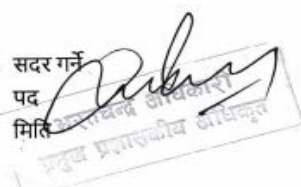 सदर गर्ने
पद
मिति
अधिकारी
प्रमुख प्रशासकीय अधिकृत